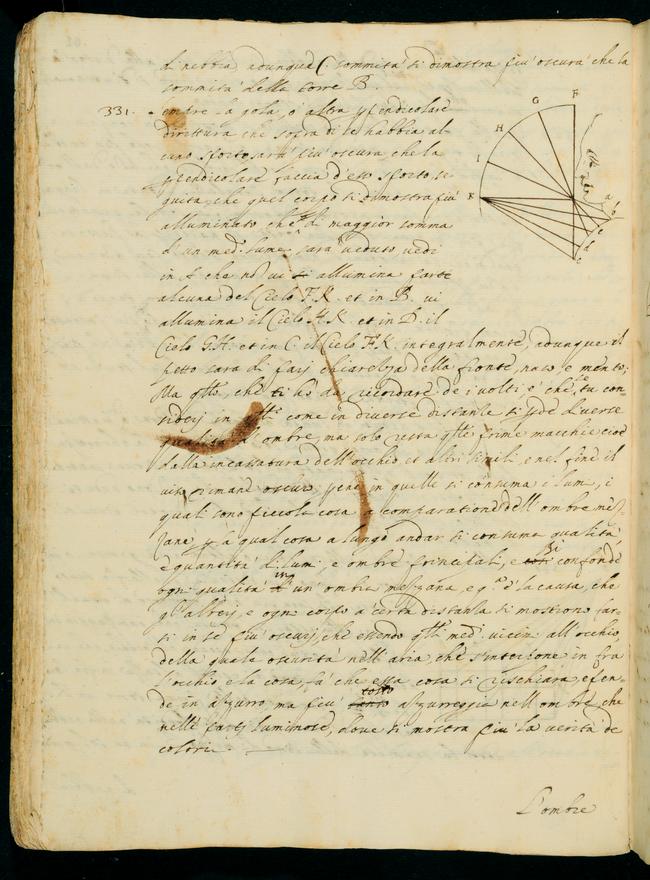 di nebbia adunque C. sommità si dimostra piu' oscura che la
sommità della torre B.
331. Sempre la gola, o' altra p̱pendicolare
dirittura che sopra di se habbia al-
cuno sporto, sarà piu' oscura, che la
p̱pendicolare faccia d'esso sporto, se-
guita, che quel corpo si dimostra piu'
alluminato che di maggior somma
di un med.º lume sarà veduto, vedi
in A che nō vi si allumina parte
alcuna del Cielo F. K. et in B. vi
allumina il Cielo H. K. et in D. il
Cielo G. H. et in C. il Cielo F. K. integralmente, adunque il
petto sarà di pari chiarezza della fronte, naso, e mento;
Ma che ti hò da ricordare de i volti, è che tu con-
sideri in come in diverse distanze si pde diverse
qualità d'ombre, ma solo resta prime macchie cioè
dalla incassatura dell'occhio et altri simili, e nel fine il
viso rimane oscuro, in quelle si cōsuma i lumi, i
quali sono piccola cosa a comparatione dell'ombre mez-
zane p̱ la qual cosa a lungo andar si consuma qualità,
e quantità di lumi, e ombre principali, e si confonde
ogni qualità in un'ombra mezzana, e q.ª è la causa, che
alberi, e ogni corpo a certa distanza si mostrono far-
si in se piu' oscuri, che essendo med. vicini all'occhio,
della quale oscurità nell'aria, che s'interpone in fra
l'occhio e la cosa, fa' che essa cosa si rischiara, e pen-
de in azzurro, ma piu' tosto azzurreggia nell'ombre, che
nelle parti luminose, dove si mostra piu' la verità de
colori.
L'ombre
F
G
H
I
K
a
b
d
c